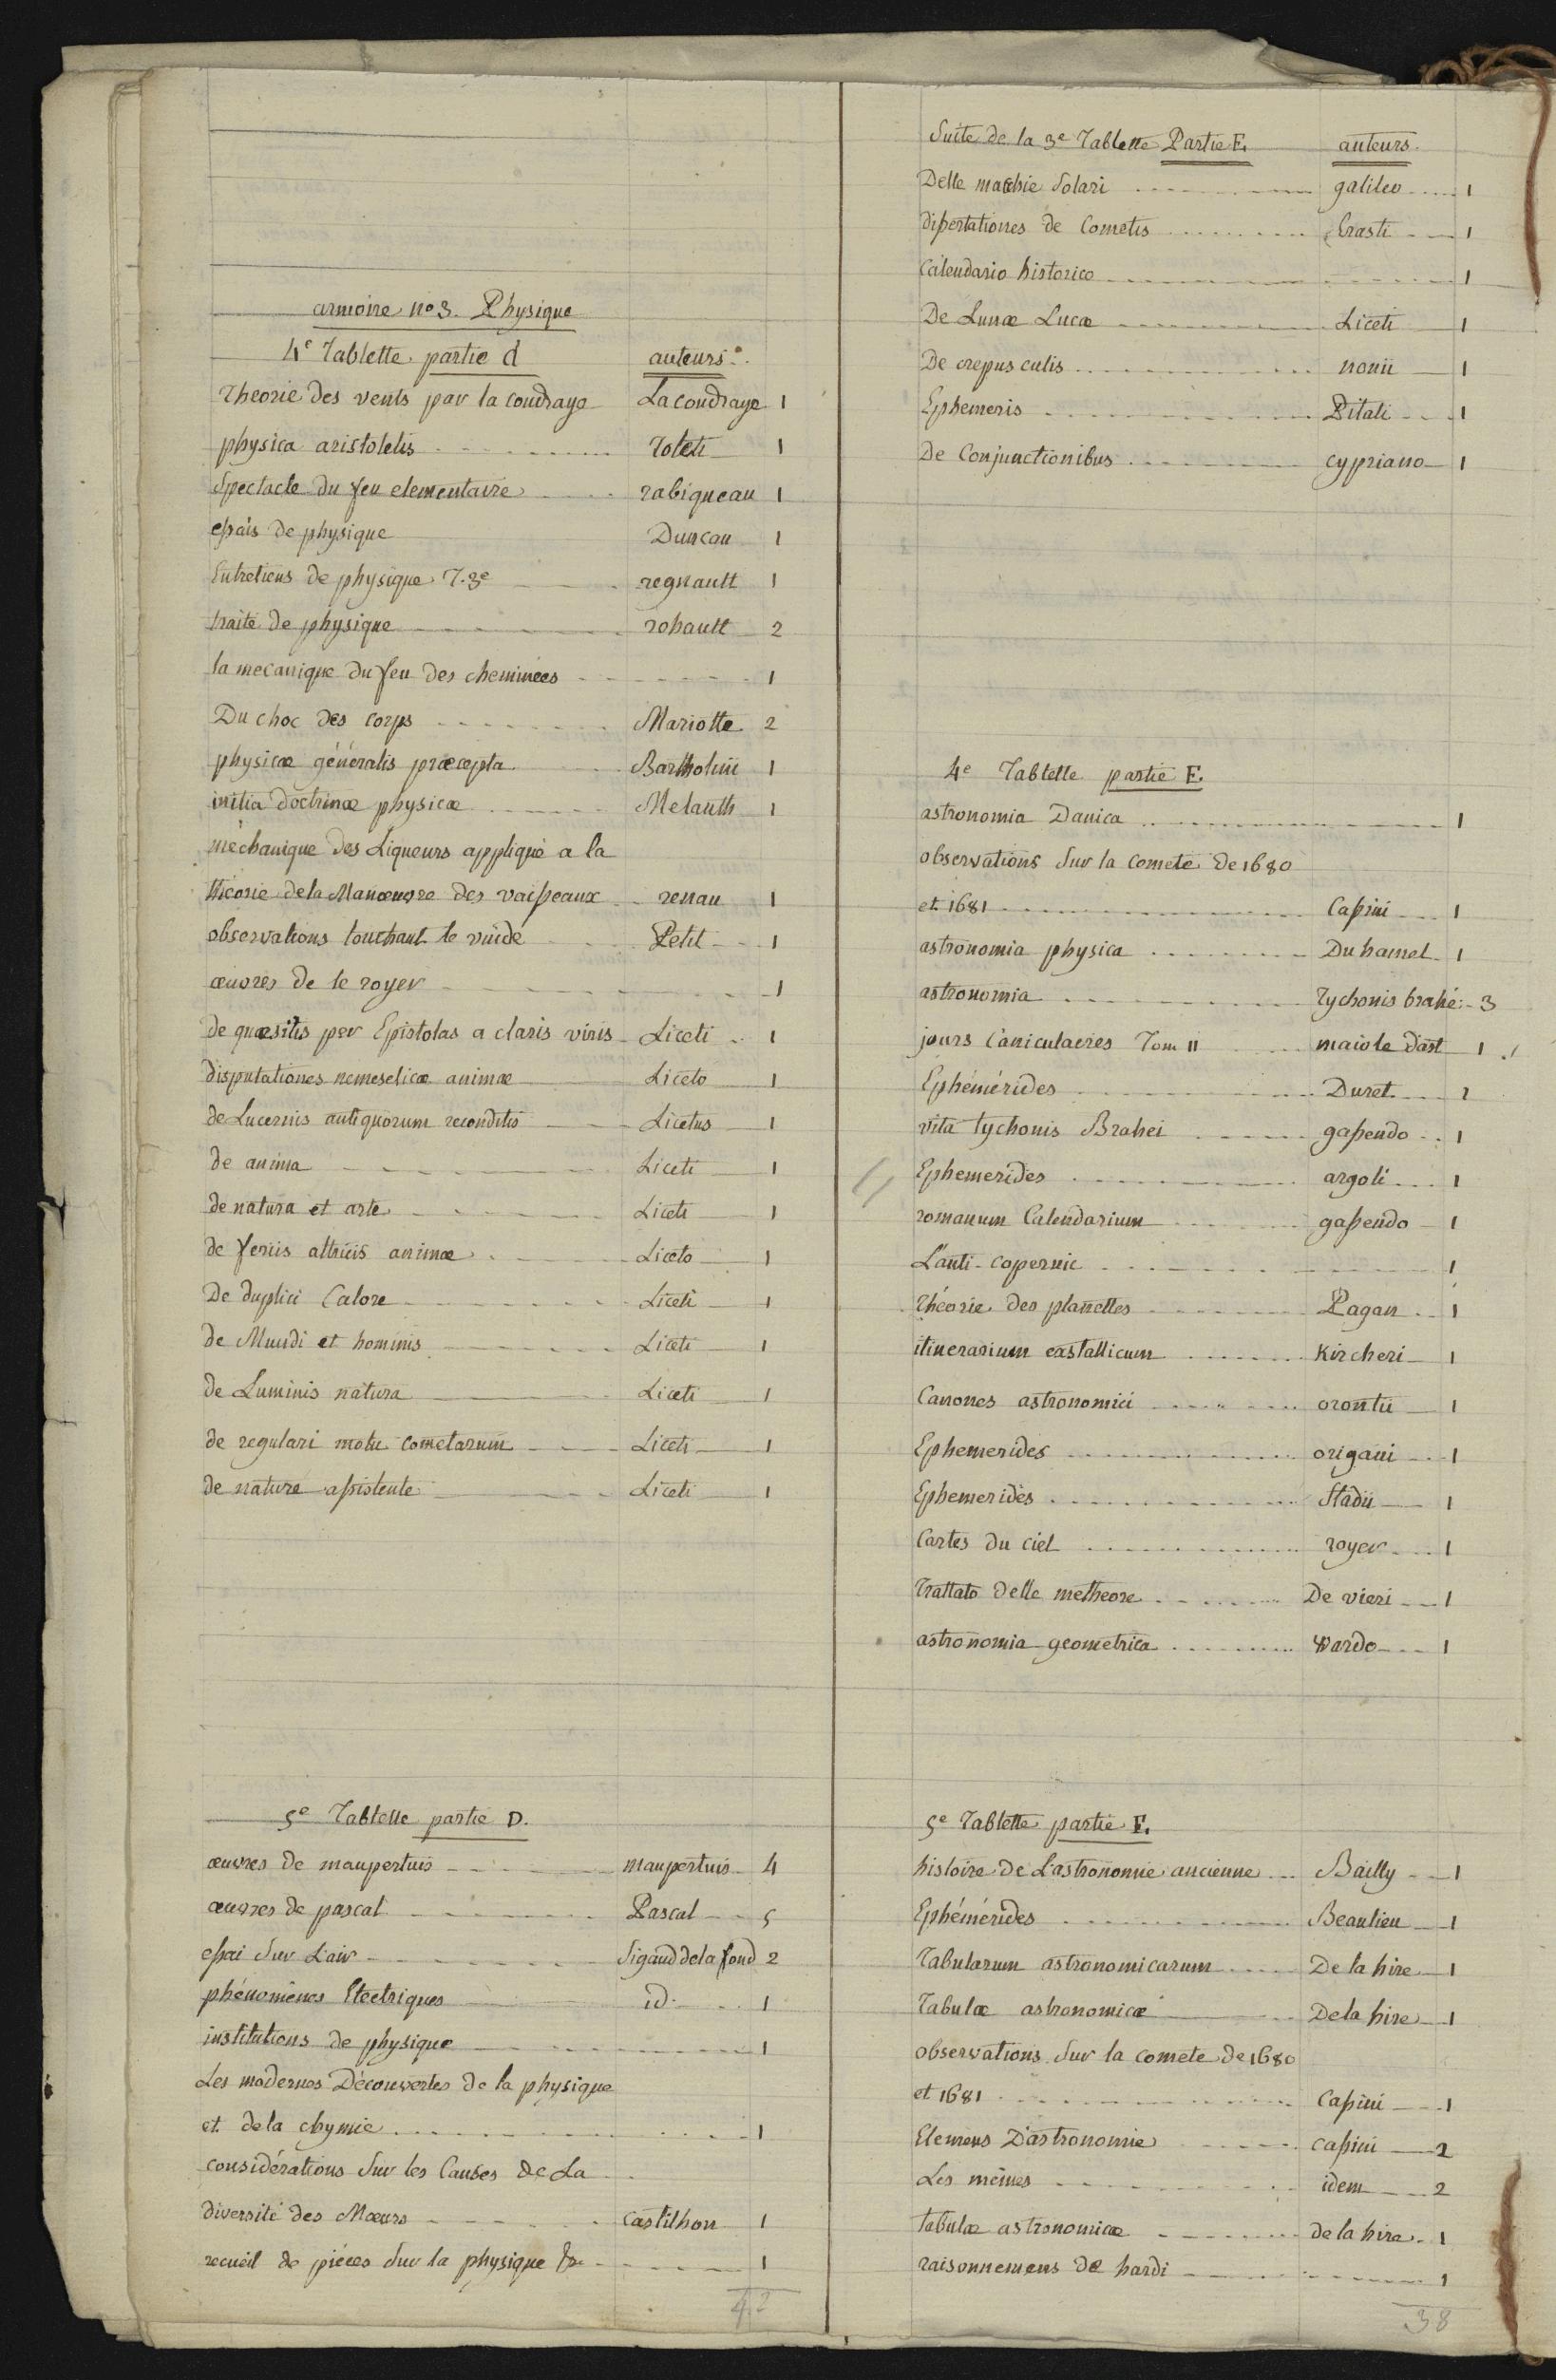 armoire no 3. Physique
4e Tablette partie d auteurs
Theorie des vents par la coudraye La coudraye 1
physica aristotelis toleti 1
Spectacle du feu elementaire rabiqueau 1
essais de physique Duncan 1
Entretiens de physique T. 3e regnault 1
traité de physique rohault 2
la mecanique du feu des cheminées 1
Du choc des corps Mariotte 2
physicæ généralis præcepta Bartholini 1
initia doctrinæ physicæ Melanth 1
méchanique des Liqueurs appliqué a la
théorie de la Manœuvre des vaisseaux renau 1
observations touchant le vuide Petit 1
œuvres de le royer 1
de quæsitis per Epistolas a claris viris Liceti 1
disputationes nemeseticæ animæ Liceto 1
de Lucernis antiquorum reconditis Licetus 1
de anima Liceti 1
de natura et arte Liceti 1
de feriis altricis animæ Liceto 1
De duplici Calore Liceti 1
de Mundi et hominis Liceti 1
de Luminis natura Liceti 1
de regulari motu cometarum Liceti 1
de nature assistente Liceti 1
5e Tablette partie D.
œuvres de maupertuis maupertuis 4
œuvres de pascal Pascal 5
essai sur L'air Sigaud de la fond 2
phénomènes Electriques id. 1
institutions de physique 1
Les modernes Découvertes de la physique
et de la chymie 1
considérations sur les Causes de La
diversité des Mœurs castilhon 1
recueil de pièces sur la physique &c 1
42
Suite de la 3e Tablette Partie E. auteurs.
Delle macchie Solari galileo 1
dissertationes de Cometis Erasti 1
Calendario historico 1
De Lunæ Lucæ Liceti 1
De crepusculis nonii 1
Ephemeris Pitati 1
De Conjunctionibus cypriano 1
4e Tablette partie E.
astronomia Danica 1
observations sur la comete de 1680
et 1681 Cassini 1
astronomia physica Du hamel 1
astronomia Tychonis brahé 3
jours Caniculaeres Tom II maiole d'ast 1
Ephémérides Duret 1
vita tychonis Brahei gassendo 1
Ephemerides argoli 1
romanum Calendarium gassendo 1
L'anti-copernic 1
théorie des planettes Pagan 1
itinerarium exstaticum Kircheri 1
Canones astronomici orontii 1
Ephemerides origani 1
Ephemerides Stadii 1
Cartes du ciel royer 1
Trattato delle metheore De vieri 1
astronomia geometrica wardo 1
5e Tablette partie E.
histoire de L'astronomie ancienne Bailly 1
Ephémérides Beaulieu 1
Tabularum astronomicarum De la hire 1
Tabulæ astronomicæ De la hire 1
observations sur la comete de 1680
et 1681 Cassini 1
Elemens D'astronomie cassini 2
Les mêmes idem 2
tabulæ astronomicæ de la hire 1
raisonnemens de hardi 1
38